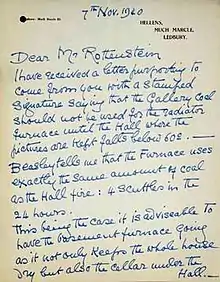 HELLENS,
MUCH MARCLE,
LEDBURY.
7th Nov. 1940
Dear Mr Rottenstein
I have received a letter purporting to
come from you with a stamped
signature saying that the Gallery Coal
should not be used for the radiator
furnace until the Hall where the
pictures are kept falls below 60°.
Beasley tells me that the Furnace uses
exactly the same amount of coal
as the Hall fire: 4 Scuttles in the
24 hours.
This being the case it is adviseable to
have the basement furnace going
as it not only keeps the whole house
dry but also the cellar under the
Hall